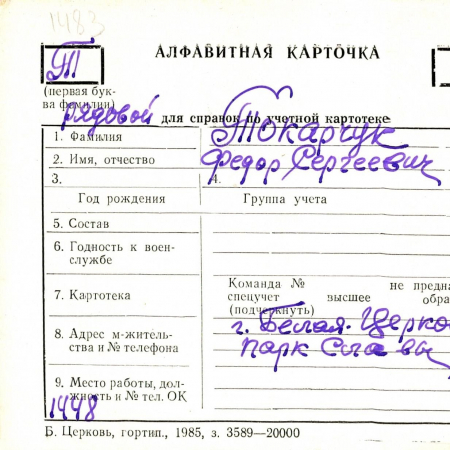 1483
АЛФАВИТНАЯ КАРТОЧКА
Т
(первая бук-
ва фамилии)
рядовой для справок по учетной картотеке
1. Фамилия Токарчук
2. Имя, отчество Федор Сергеевич
3. 4.
Год рождения Группа учета
5. Состав
6. Годность к воен-
службе
7. Картотека
Команда № не предна
спецучет высшее обра
(подчеркнуть)
8. Адрес м-житель-
ства и № телефона
г. Белая-Церко
парк Славы
9. Место работы, дол-
жность и № тел. ОК
1448
Б. Церковь, гортип., 1985, з. 3589—20000